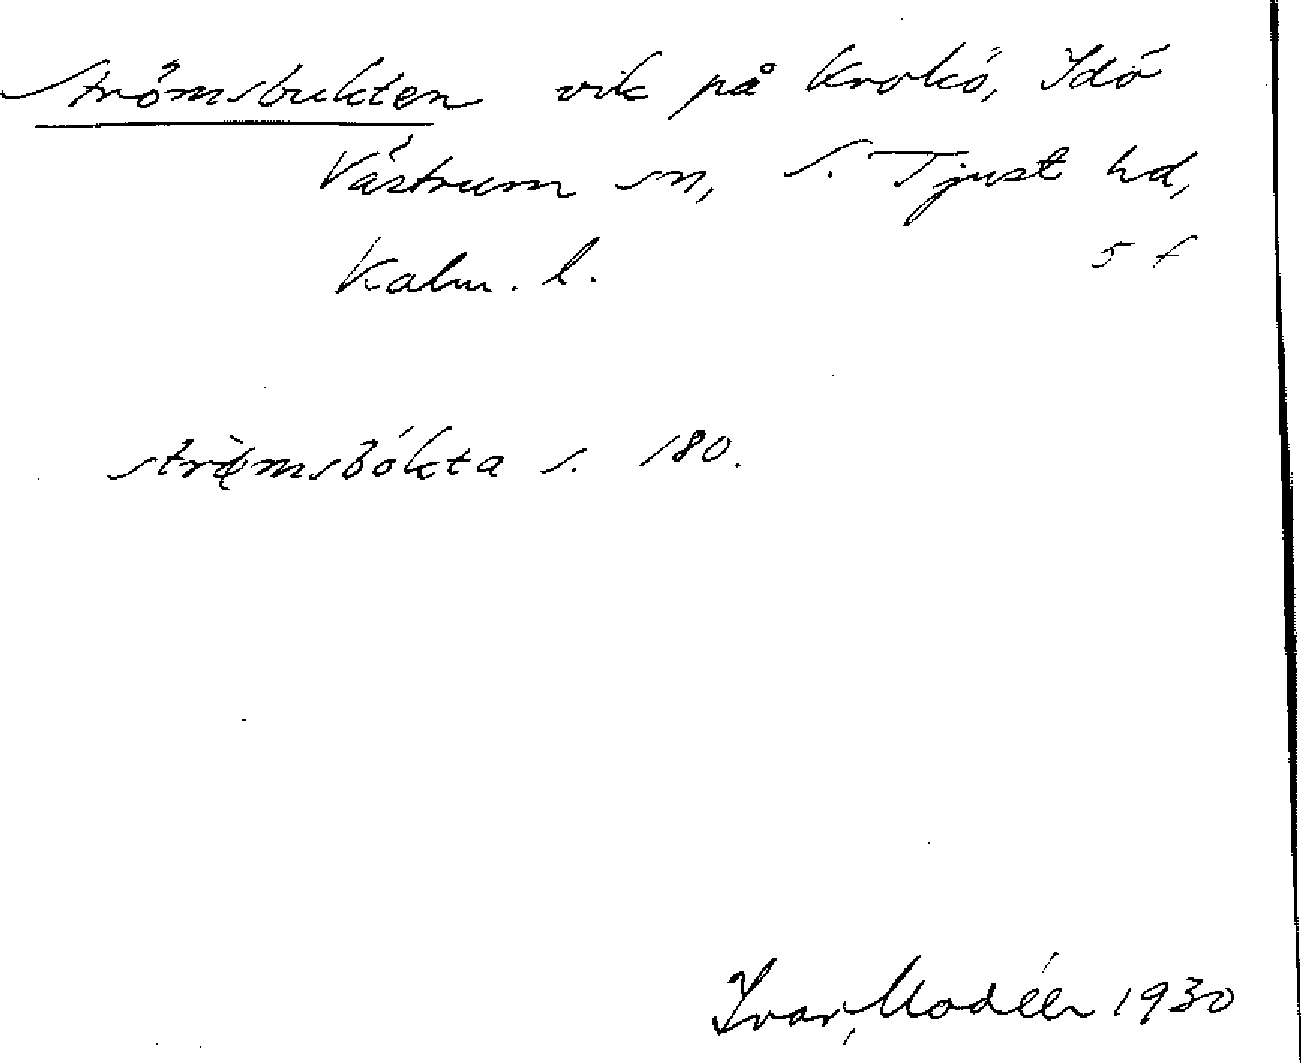 Strömsbukten vik på Krokö, Idö
Västrum sn, S. Tjust hd,
Kalm. l. 5 f
s. 180.
Ivar Modéer 1930